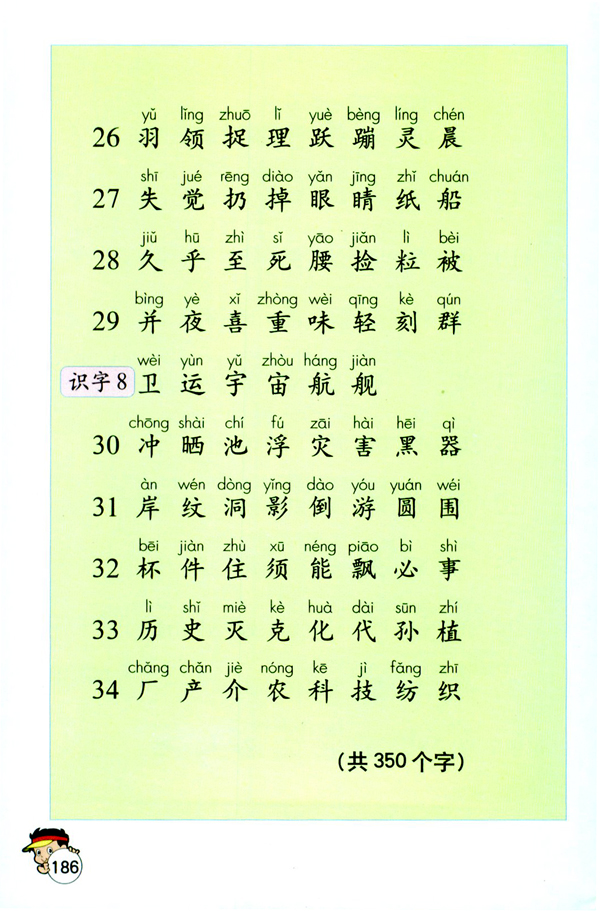 yǔ lǐng zhuō lǐ yuè bèng líng chén
26 羽 领 捉 理 跃 蹦 灵 晨
shī jué rēng diào yǎn jīng zhǐ chuán
27 失 觉 扔 掉 眼 睛 纸 船
jiǔ hū zhì sǐ yāo jiǎn lì bèi
28 久 乎 至 死 腰 捡 粒 被
bìng yè xǐ zhòng wèi qīng kè qún
29 并 夜 喜 重 味 轻 刻 群
wèi yùn yǔ zhòu háng jiàn
识字8 卫 运 宇 宙 航 舰
chōng shài chí fú zāi hài hēi qì
30 冲 晒 池 浮 灾 害 黑 器
àn wén dòng yǐng dào yóu yuán wéi
31 岸 纹 洞 影 倒 游 圆 围
bēi jiàn zhù xū néng piāo bì shì
32 杯 件 住 须 能 飘 必 事
lì shǐ miè kè huà dài sūn zhí
33 历 史 灭 克 化 代 孙 植
chǎng chǎn jiè nóng kē jì fǎng zhī
34 厂 产 介 农 科 技 纺 织
（共 350 个字）
186